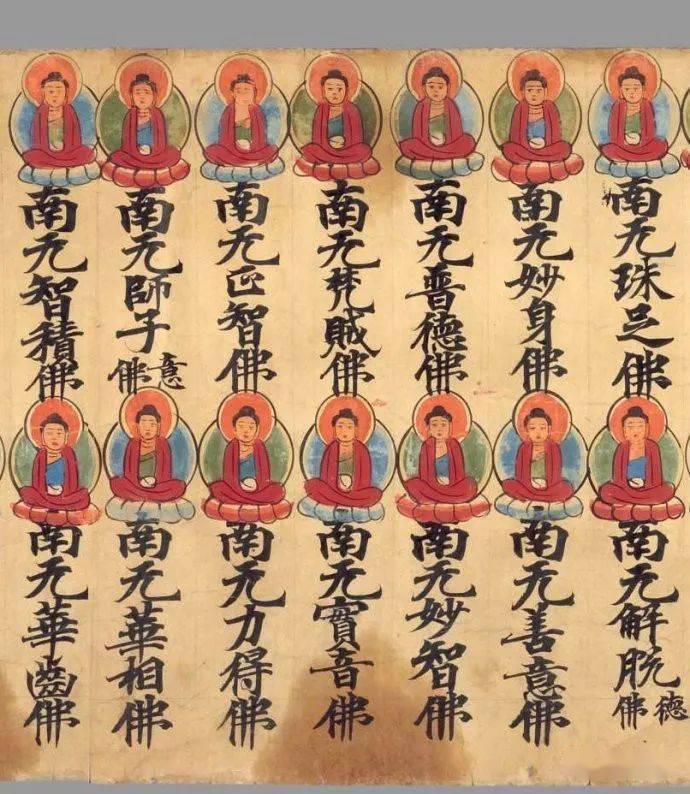 南无珠足佛
南无妙身佛
南无普德佛
南无梵賊佛
南无正智佛
南无師子意佛
南无智積佛
南无解脱德佛
南无善意佛
南无妙智佛
南无實音佛
南无力得佛
南无華相佛
南无華齒佛